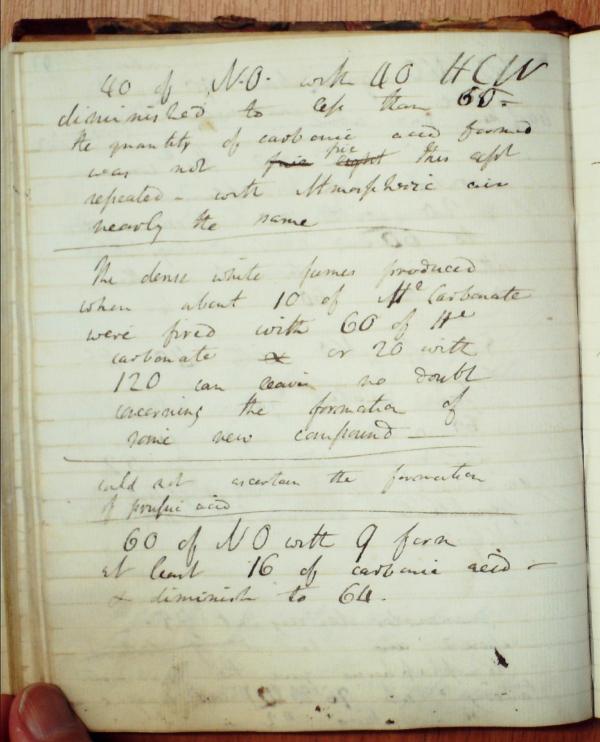 40 of N.O. with 40 HCW
diminished to less than 65 -
the quantity of carbonic acid formed
was not five eight five this expt
repeated - with Atmospheric air
nearly the same
The dense white fumes produced
when about 10 of
were fired with 60 of
carbonate or 20 with
120 can leave no doubt
concerning the formation of
some new compound -
could not ascertain the formation
of prussic acid
60 of NO with 9 form
at least 16 of carbonic acid -
& diminish to 64.